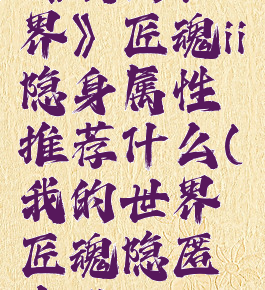 界》匠魂ii
隐身属性
推荐什么(
我的世界
匠魂隐匿